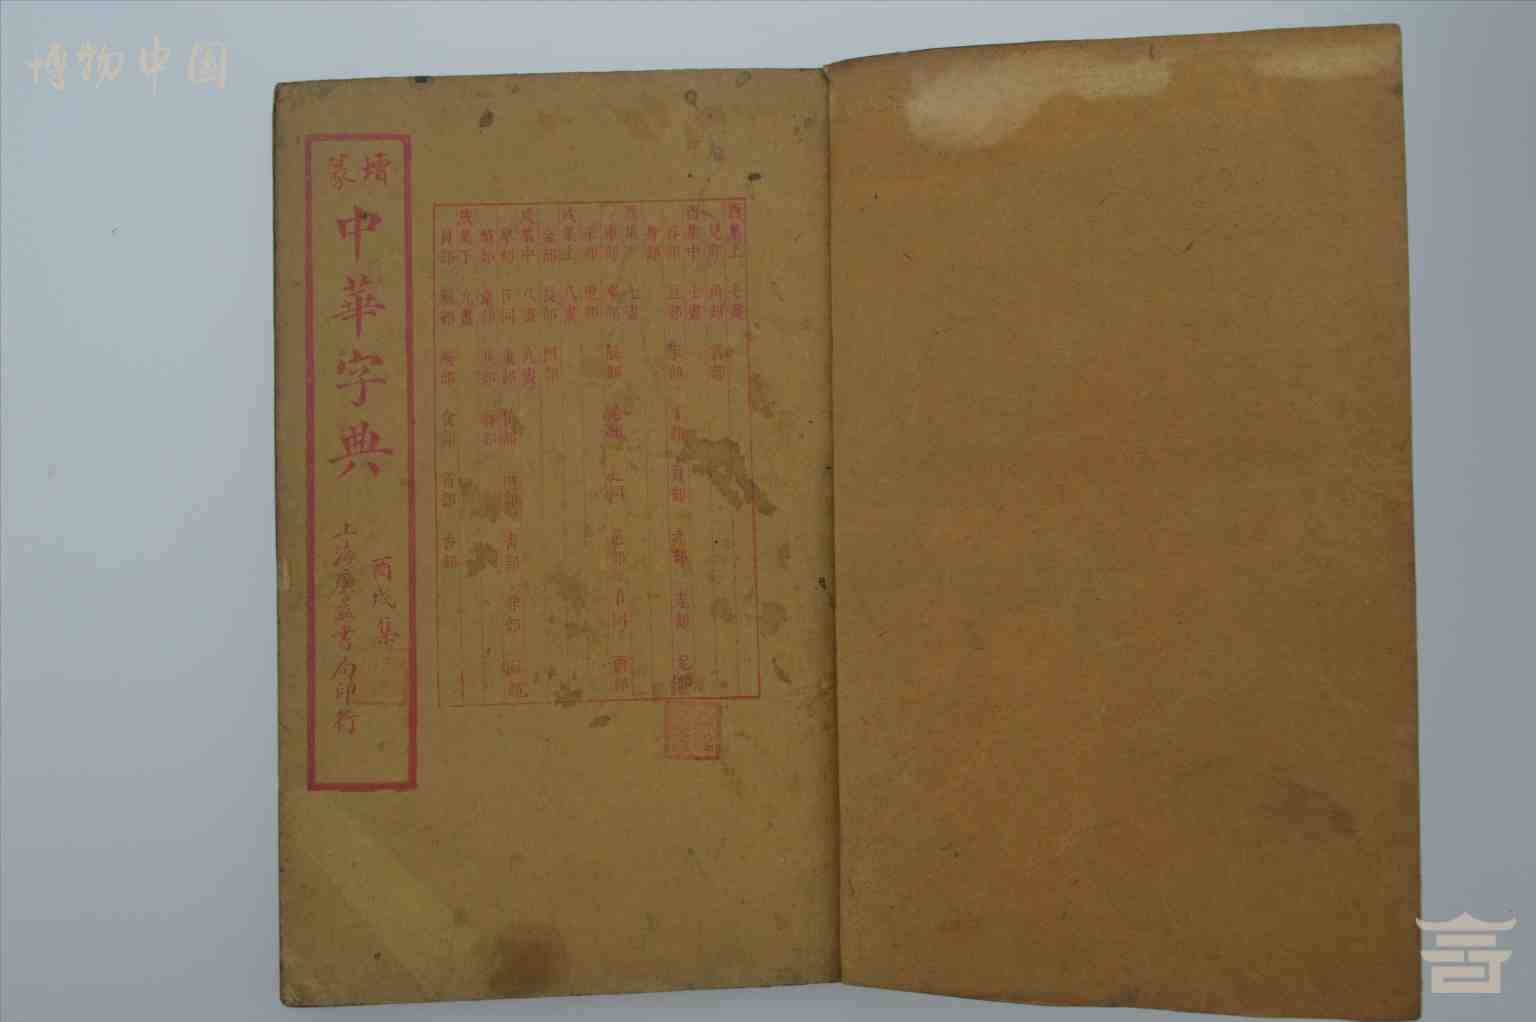 博物中国
增篆
中華字典
酉戌集
上海廣益書局印行
酉集上 七畫
見部 角部 言部
酉集中 七畫
谷部 豆部 豕部 貝部 赤部 走部 足部
身部
酉集下 七畫
車部 辛部 辰部 邑部 酉部
里部
戌集上 八畫
金部 長部 門部
戌集中 八畫 九畫
阜部 隶部 隹部 雨部 青部 非部 面部
革部 韋部 韭部 音部
戌集下 九畫
頁部 風部 飛部 食部 首部 香部